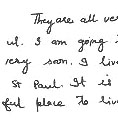 They are all ver
ul. I am going t
very soon. I live
St Paul. It is
ful place to live